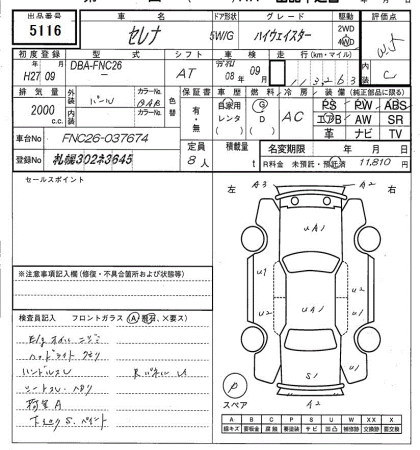 出品番号 車名 ドア形状 グレード 駆動 評価点
5116 セレナ 5W/G ハイウェイスター 2WD 4WD
内装 C
初度登録 型式 シフト 車検 走行(km・マイル)
H27 09 DBA-FNC26 AT 08年 09月 113263
排気量 外装 パール カラーNo. QAB 色替 保証書 車歴 燃料 冷房 装備(純正部品に限る)
2000 c.c. 内装 カラーNo. 有・無 自家用 レンタ G D AC PS PW ABS
エアB AW SR
革 ナビ TV
車台No FNC26-037674 定員 積載量 名変期限 年 月 日
登録No 札幌302ネ3645 8人 t R料金 未預託・預託済 11,810 円
セールスポイント
左 右
A3 A2
UA1
U1 U2
UA1
U1
S1
A2
※注意事項記入欄(修復・不具合箇所および状態等)
検査員記入 フロントガラス(A)飛石、X要ス)
E/g オイルニジミ
ヘッドライト クモリ
ハンドルスレ
シートスレ・ヘタリ
下廻り S.ペイント
P
スペア
A B C P S U W X XX
線キズ 要板金 腐蝕 要塗装 サビ 凹凸 補修跡 交換跡 要交換